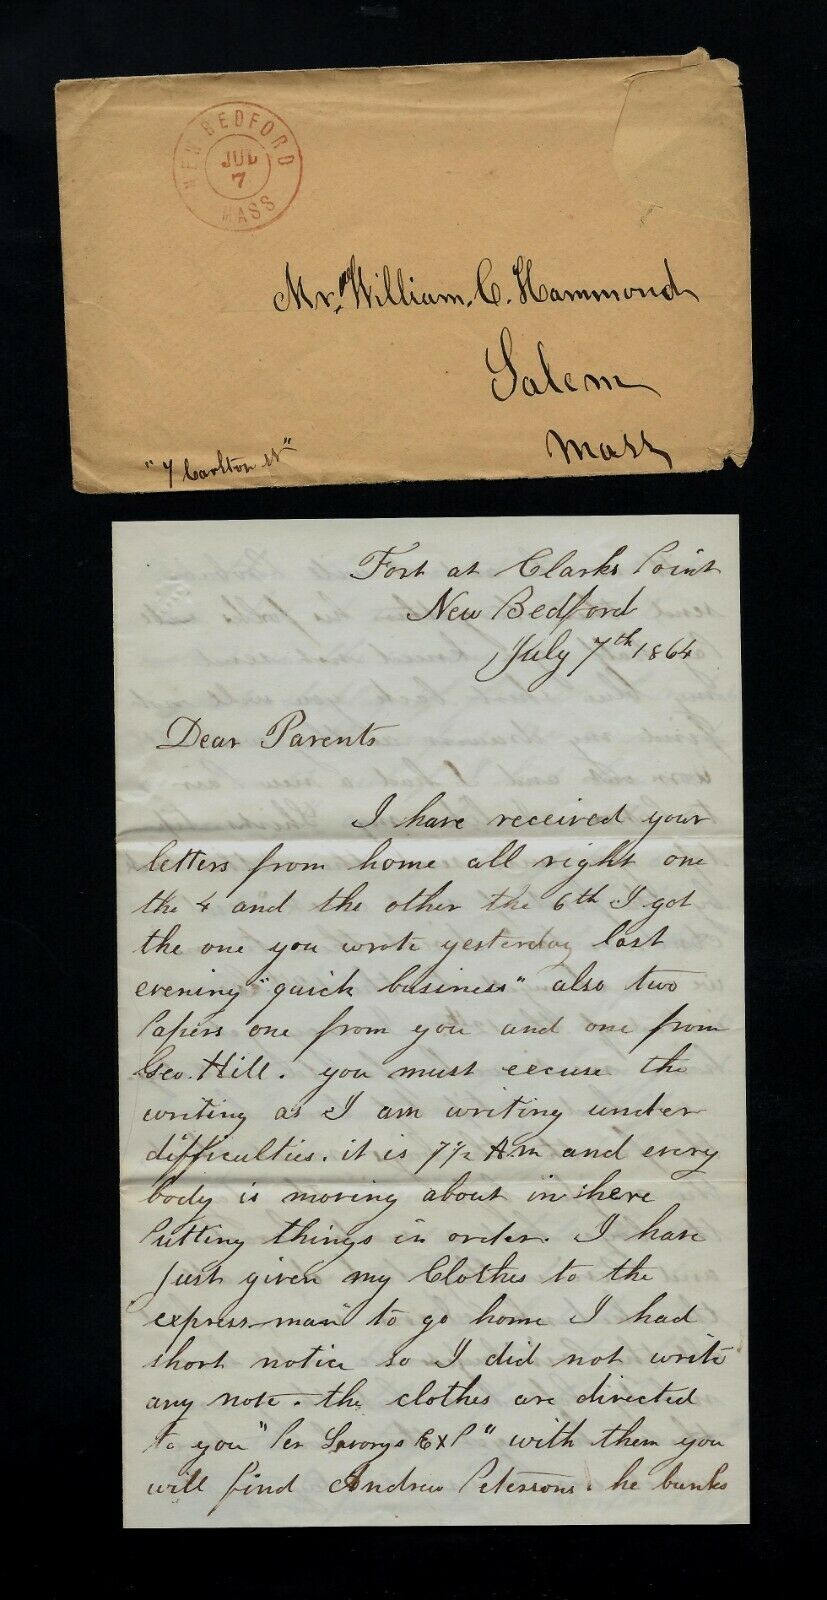 NEW BEDFORD
JUL
7
MASS
Mr. William. C. Hammond
Salem
Mass
"7 Carlton St"
Fort at Clarks Point
New Bedford
July 7th 1864
Dear Parents
I have received your
letters from home all right one
the 4 and the other the 6th I got
the one you wrote yesterday last
evening "quick business" also two
Papers one from you and one from
Geo. Hill. you must excuse the
writing as I am writing under
difficulties. it is 7 1/2 Am and every
body is moving about in here
Putting things in order. I have
just given my Clothes to the
express-man to go home I had
short notice so I did not write
any note. the clothes are directed
to you "Per Savorys ExP" with them you
will find Andrew Petersons. he bunks